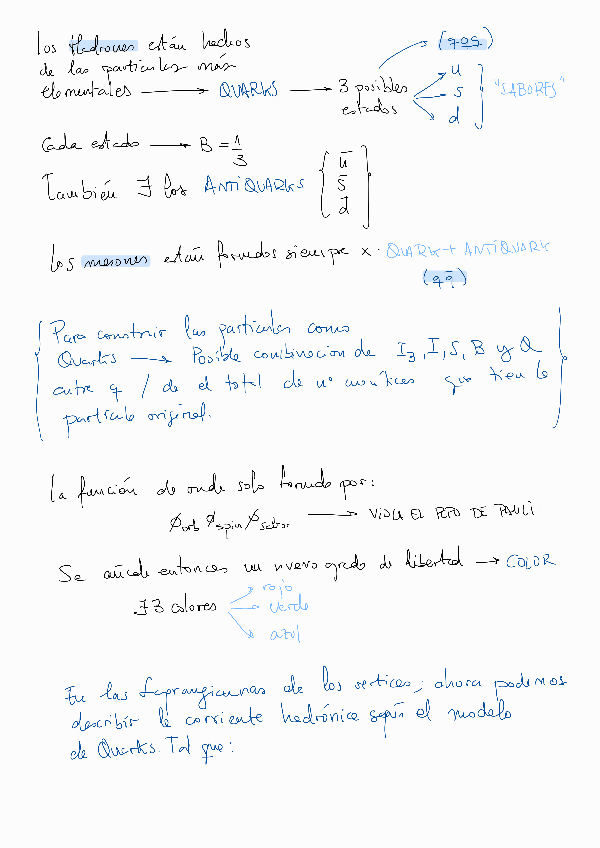 Los Hadrones están hechos
de las partículas más
elementales → QUARKS → 3 posibles estados
(qqq)
u
s
d
"SABORES"
Cada estado → B = 1/3
También ∃ los ANTIQUARKS
ū
s̄
d̄
Los mesones están formados siempre x. QUARK + ANTIQUARK
(qq̄)
Para construir las partículas como
Quarks → Posible combinación de I₃, I, S, B y Q
entre q / de el total de nº cuánticos que tien la
partícula original.
La función de onda solo formada por:
ϕorb ϕspin ϕsabor → VIOLA EL PPIO DE PAULI
Se añade entonces un nuevo grado de libertad → COLOR
∃ 3 colores
rojo
verde
azul
En las Lagrangianas de los vertices, ahora podemos
describir la corriente hadrónica según el modelo
de Quarks. Tal que: